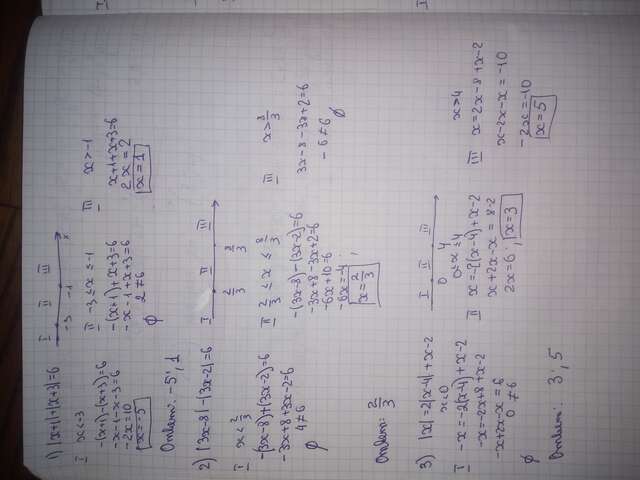 1) |x+1|+|x+3|=6
I II III
-3 -1 x
I x<-3
-(x+1)-(x+3)=6
-x-1-x-3=6
-2x=10
x=-5
II -3≤x≤-1
-(x+1)+x+3=6
-x-1+x+3=6
2≠6
∅
III x>-1
x+1+x+3=6
2x=2
x=1
Ответ: -5; 1
2) |3x-8|-|3x-2|=6
I II III
2/3 8/3
I x<2/3
-(3x-8)+(3x-2)=6
-3x+8+3x-2=6
4≠6
∅
II 2/3≤x≤8/3
-(3x-8)-(3x-2)=6
-3x+8-3x+2=6
-6x+10=6
-6x=-4;
x=2/3
III x>8/3
3x-8-3x+2=6
-6≠6
∅
Ответ: 2/3
3) |x|=2|x-4|+x-2
I II III
0 4
x<0
I -x=-2(x-4)+x-2
-x=-2x+8+x-2
-x+2x-x=6
0≠6
∅
0≤x≤4
II x=-2(x-4)+x-2
x+2x-x=8-2
2x=6; x=3
x>4
III x=2x-8+x-2
x-2x-x=-10
-2x=-10
x=5
Ответ: 3; 5